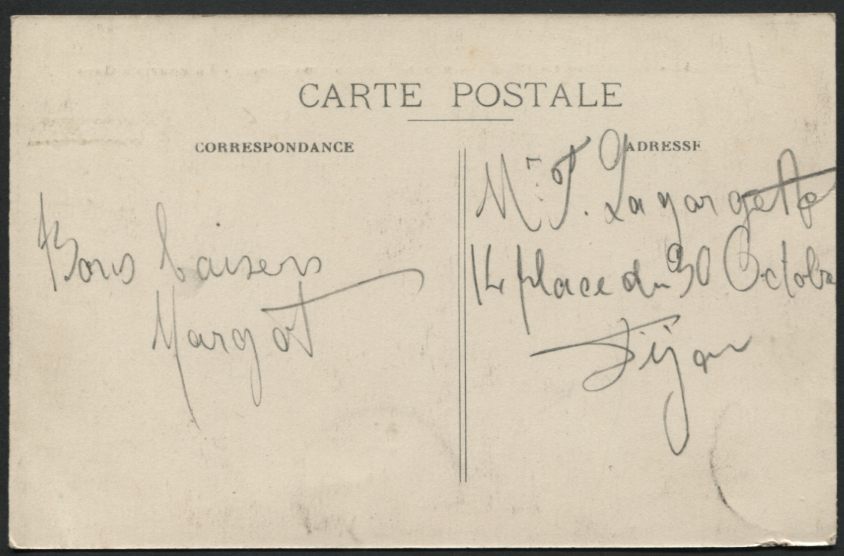 CARTE POSTALE
CORRESPONDANCE
ADRESSE
Bons baisers
Margot
Mr J. Lagargette
14 place du 30 Octobre
Dijon